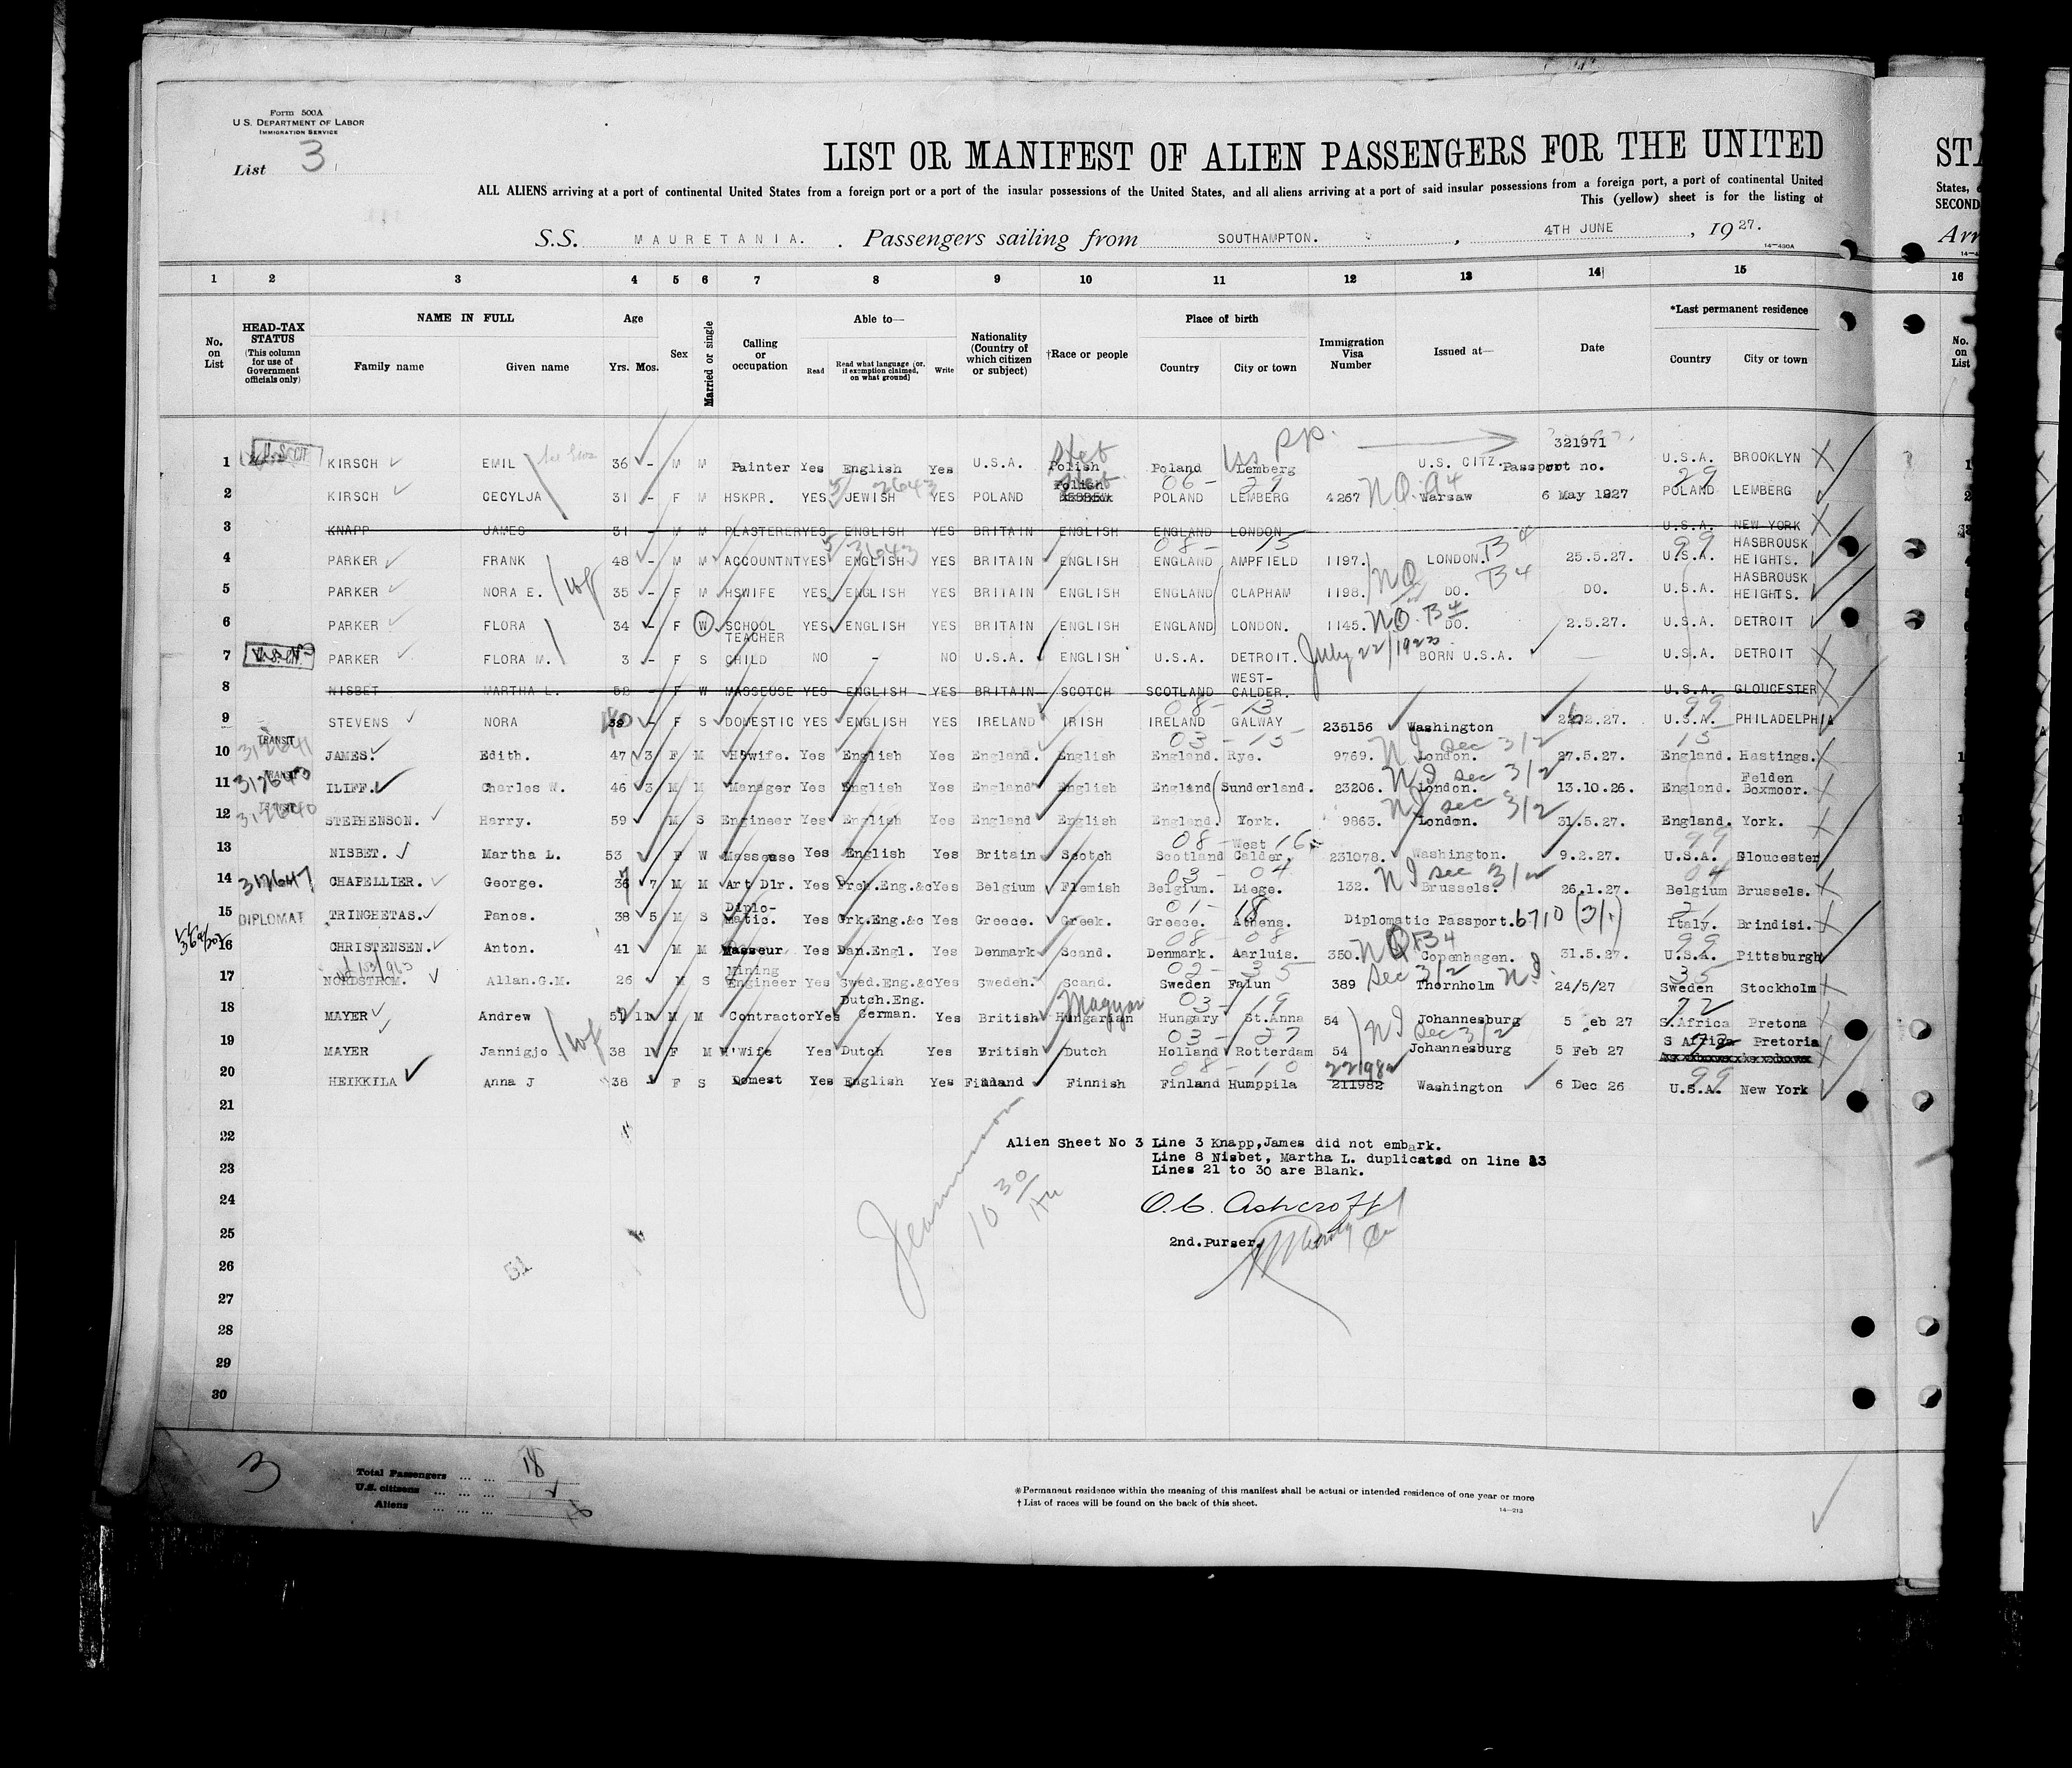 Form 500A
U. S. DEPARTMENT OF LABOR
IMMIGRATION SERVICE
List 3
LIST OR MANIFEST OF ALIEN PASSENGERS FOR THE UNITED
ALL ALIENS arriving at a port of continental United States from a foreign port or a port of the insular possessions of the United States, and all aliens arriving at a port of said insular possessions from a foreign port, a port of continental United
This (yellow) sheet is for the listing of
S.S. MAURETANIA. Passengers sailing from SOUTHAMPTON. , 4TH JUNE , 19 27.
14-430A
STA
States,
SECOND
Arr
1 2 3 4 5 6 7 8 9 10 11 12 13 14 15 16
No. on List
HEAD-TAX STATUS (This column for use of Government officials only)
NAME IN FULL
Family name Given name
Age
Yrs. Mos.
Sex
Married or single
Calling or occupation
Able to—
Read Read what language (or, if exemption claimed, on what ground) Write
Nationality (Country of which citizen or subject)
†Race or people
Place of birth
Country City or town
Immigration Visa Number
Issued at—
Date
*Last permanent residence
Country City or town
No. on List
321971
1 KIRSCH EMIL 36 - M M Painter Yes English Yes U.S.A. Polish Poland Lemberg U.S. CITZ. Passport no. U.S.A. BROOKLYN
2 KIRSCH CECYLJA 31 - F M HSKPR. YES JEWISH YES POLAND Polish POLAND LEMBERG 4267 Warsaw 6 May 1927 POLAND LEMBERG
3 KNAPP JAMES 31 - M M PLASTERER YES ENGLISH YES BRITAIN ENGLISH ENGLAND LONDON U.S.A. NEW YORK
4 PARKER FRANK 48 - M M ACCOUNTNT YES ENGLISH YES BRITAIN ENGLISH ENGLAND AMPFIELD 1197. LONDON. 25.5.27. U.S.A. HASBROUSK HEIGHTS.
5 PARKER NORA E. wf 35 - F M HSWIFE YES ENGLISH YES BRITAIN ENGLISH ENGLAND CLAPHAM 1198. NQ DO. B4 DO. U.S.A. HASBROUSK HEIGHTS.
6 PARKER FLORA 34 - F W SCHOOL TEACHER YES ENGLISH YES BRITAIN ENGLISH ENGLAND LONDON. 1145. NQ. B4 DO. 2.5.27. U.S.A. DETROIT
7 PARKER FLORA M. 3 - F S CHILD NO - NO U.S.A. ENGLISH U.S.A. DETROIT. July 22/1923 BORN U.S.A. U.S.A. DETROIT
8 NISBET MARTHA L. 52 - F W MASSEUSE YES ENGLISH YES BRITAIN SCOTCH SCOTLAND WEST-CALDER. U.S.A. GLOUCESTER
9 STEVENS NORA 40 - F S DOMESTIC YES ENGLISH YES IRELAND IRISH IRELAND GALWAY 235156 Washington U.S.A. PHILADELPHIA
10 TRANSIT JAMES. Edith. 47 3 F M HSwife. Yes English Yes England. English England. Rye. 9769. London. NI sec 3/2 27.5.27. England. Hastings.
11 ILIFF. Charles W. 46 3 M M Manager Yes English Yes England English England Sunderland. 23206. London. NI sec 3/2 13.10.26. England. Felden Boxmoor.
12 STEPHENSON. Harry. 59 M S Engineer Yes English Yes England English England. York. 9863. London. NI sec 3/2 31.5.27. England. York.
13 NISBET. Martha L. 53 F W Masseuse Yes English Yes Britain Scotch Scotland West Calder. 231078. Washington. 9.2.27. U.S.A. Gloucester
14 317647 CHAPELLIER. George. 36 7 M M Art Dlr. Yes Frch.Eng.&c Yes Belgium Flemish Belgium. Liege. 132. Brussels. NI sec 3/2 26.1.27. Belgium Brussels.
15 DIPLOMAT TRINGHETAS. Panos. 38 5 M S Diplo-matic. Yes Grk.Eng.&c Yes Greece. Greek. Greece. Athens. Diplomatic Passport. 6710 (3/1) Italy. Brindisi.
16 CHRISTENSEN. Anton. 41 M M Masseur Yes Dan.Engl. Yes Denmark Scand. Denmark. Aarluis. 350. NQ B4 Copenhagen. 31.5.27. U.S.A. Pittsburgh
17 NORDSTROM. Allan.G.M. 26 M S Mining Engineer Yes Swed.Eng.&c Yes Sweden. Scand. Sweden Falun 389 Sec 3/2 NI Thornholm 24/5/27 Sweden Stockholm
18 MAYER Andrew 11 M M Contractor Yes Dutch.Eng. German. Yes British Hungarian Magyar Hungary St.Anna 54 Johannesburg 5 eb 27 S.Africa Pretona
19 MAYER Jannigjo wf 38 1 F M H'Wife Yes Dutch Yes British Dutch Holland Rotterdam 54 NI Sec 3/2 Johannesburg 5 Feb 27 S Africa Pretoria
20 HEIKKILA Anna J 38 F S Domest Yes English Yes Finland Finnish Finland Humppila 211982 Washington 6 Dec 26 U.S.A. New York
21
22
23
24
25
26
27
28
29
30
Alien Sheet No 3 Line 3 Knapp,James did not embark.
Line 8 Nisbet, Martha L. duplicated on line 13
Lines 21 to 30 are Blank.
10 30
O.C. Ashcroft
2nd.Purser.
3
Total Passengers ... ... 18
U.S. citizens ... ... 2
Aliens ... ... ... 16
*Permanent residence within the meaning of this manifest shall be actual or intended residence of one year or more
† List of races will be found on the back of this sheet.
14-213